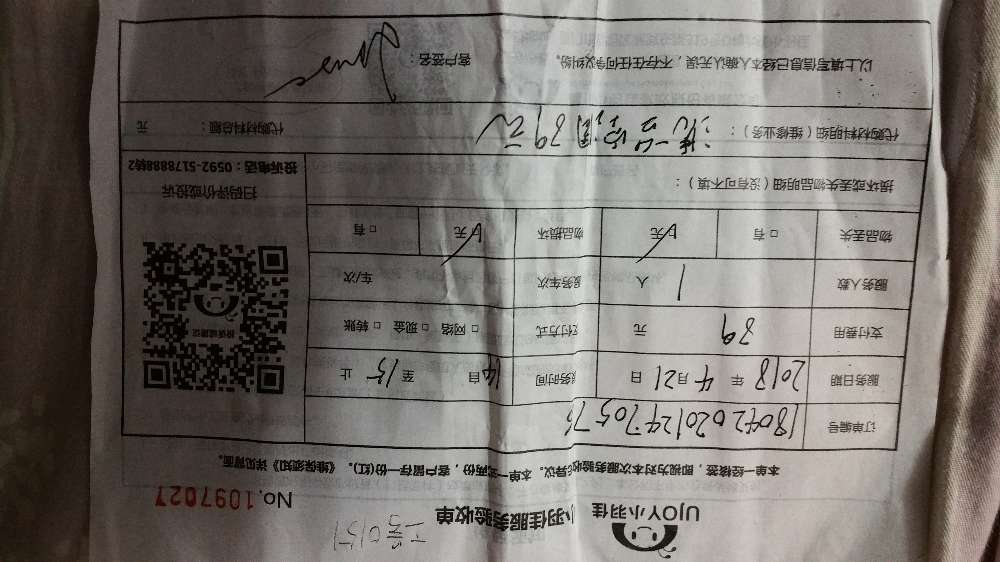 UJOY小羽佳
小羽佳服务验收单
No.1097027
本单一经核签，即视为对本次服务验收异议。本单一式两份，客户留存一份(红)。《维保须知》详见背面。
订单编号
服务日期 2018 年 4 月 21 日 服务时间 自 14 至 15 止
支付费用 39 元 支付方式 □ 网络 □ 现金 □ 转账
服务人数 1 人 服务车次 车/次
物品丢失 □ 有 □ 无 物品损坏 □ 无 □ 有
投诉或建议
扫码评价或投诉
投诉电话：0592-5178888转2
损坏或丢失物品明细（没有可不填）：
代购材料明细（维修业务）： 39元 代购材料总额： 元
以上填写信息已经本人确认无误，不存在任何争议纠纷。 客户签名：